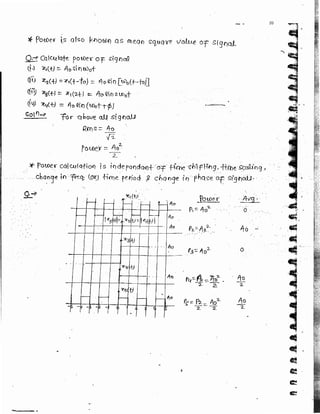 * Power is also known as mean square value of signal.
Q→ Calculate power of signal
(i) x₁(t) = A₀ sin ω₀t
(ii) x₂(t) = x₁(t-t₀) = A₀ sin [ω₀(t-t₀)]
(iii) x₃(t) = x₁(2t) = A₀ sin 2ω₀t
(iv) x₄(t) = A₀ sin (ω₀t+ϕ)
Solⁿ→ For above all signals
Rms = A₀/√2
Power = A₀²/2
* Power calculation is independent of time shifting, time scaling,
change in freq (or) time period & change in phase of signals.
Q→ x₁(t) Power Avg.
A₀ P₁ = A₀² 0
A₀ P₂ = A₀² A₀
x₃(t) A₀ P₃ = A₀² 0
x₄(t) A₀ A₀/2
x₅(t) A₀ A₀²/2 A₀/2